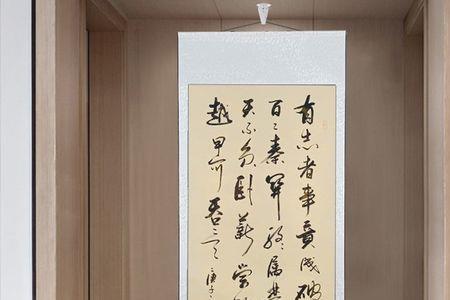 有志者事竟成破
百二秦關終属楚
天不負卧薪嘗胆
越甲可吞吴
庚子